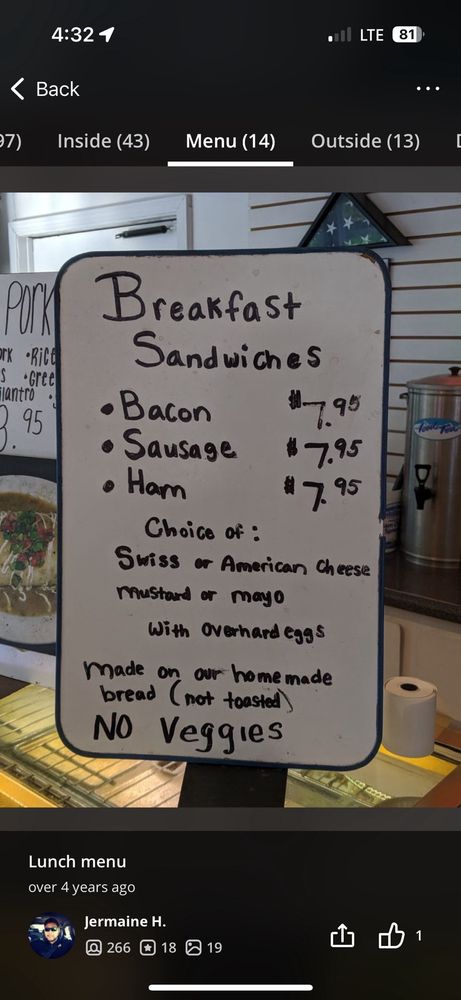 4:32
LTE 81
Back
97) Inside (43) Menu (14) Outside (13)
Pork
•Rice
•Gree
.95
Breakfast
Sandwiches
• Bacon $7.95
• Sausage $7.95
• Ham $7.95
Choice of:
Swiss or American Cheese
mustard or mayo
With overhard eggs
Made on our homemade
bread (not toasted)
NO Veggies
Lunch menu
over 4 years ago
Jermaine H.
266 18 19
1